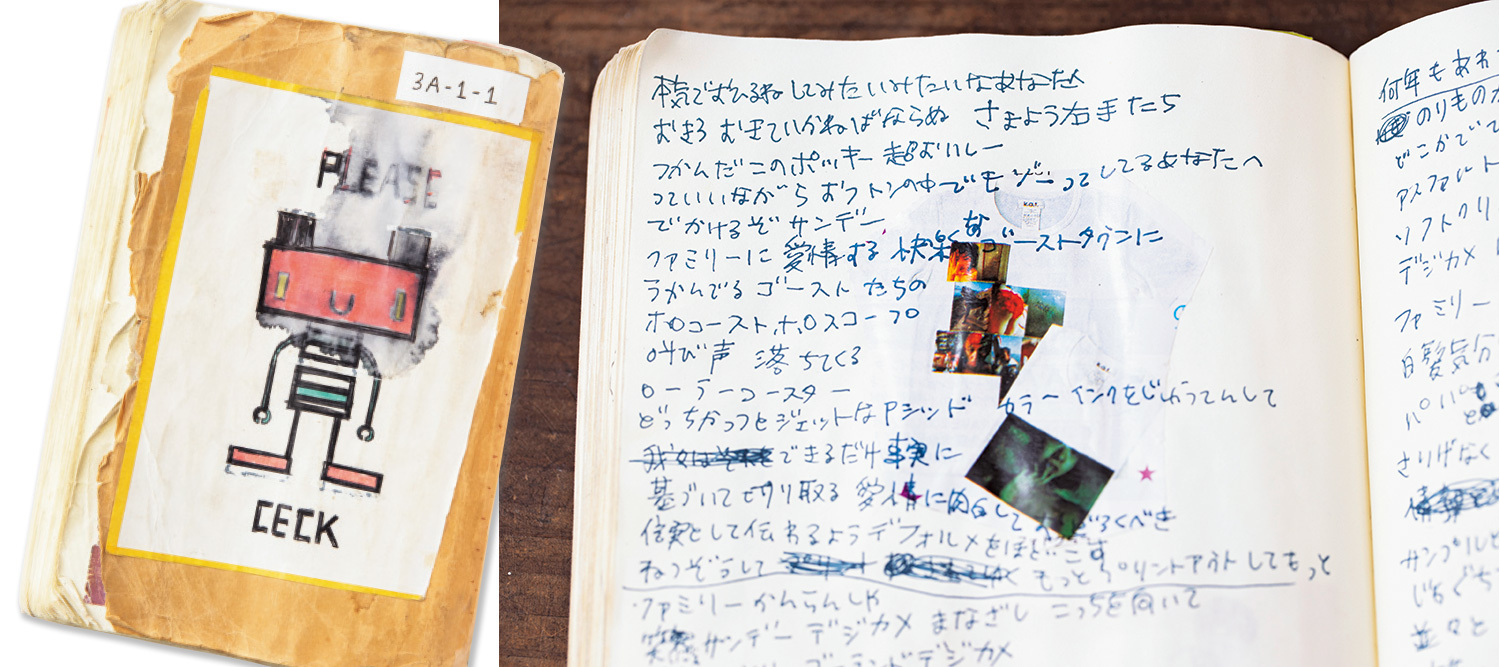 3A-1-1
PLEASE
CECK
本気でおひるねしてみたいみたいなあなたへ
おきろ おきていかねばならぬ さまよう右手たち
つかんだこのポッキー 超おいしー
っていいながら おフトンの中でモゾーってしてるあなたへ
でかけるぞ サンデー
ファミリーに 愛情する 快楽な ゴーストタウンに
うかんでる ゴースト たちの
ホロコースト,ホロスコープ
叫び声 落ちてくる
ローラーコースター
どっちかっつとジェットは カラーインクを
できるだけ事実に
基づいて切り取る 愛情に して べき
信実として伝わるよう デフォルメをほどこす
ねつぞうして もっと プリントアウトしてもっと
・ファミリー かんらんしゃ
サンデー デジカメ まなざし こっちを向いて
デジカメ
何年もあれ
のりものが
どこかでて
アスファルト
ソフトクリ
デジカメ
ファミリー
白髪気分
さりげなく
サンプルと
じもぐち
並々と